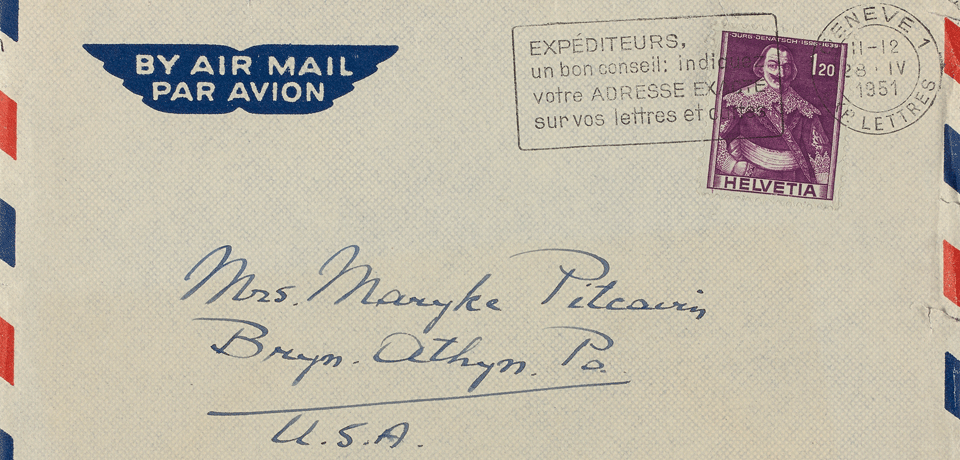 BY AIR MAIL
PAR AVION
EXPÉDITEURS,
un bon conseil:
votre ADRESSE
sur vos lettres et
JURG JENATSCH 1596-1639
1 20
HELVETIA
GENEVE 1
11-12
28·IV
1951
LETTRES
Mrs. Maryke Pitcairn
Bryn. Athyn. Pa.
U.S.A.